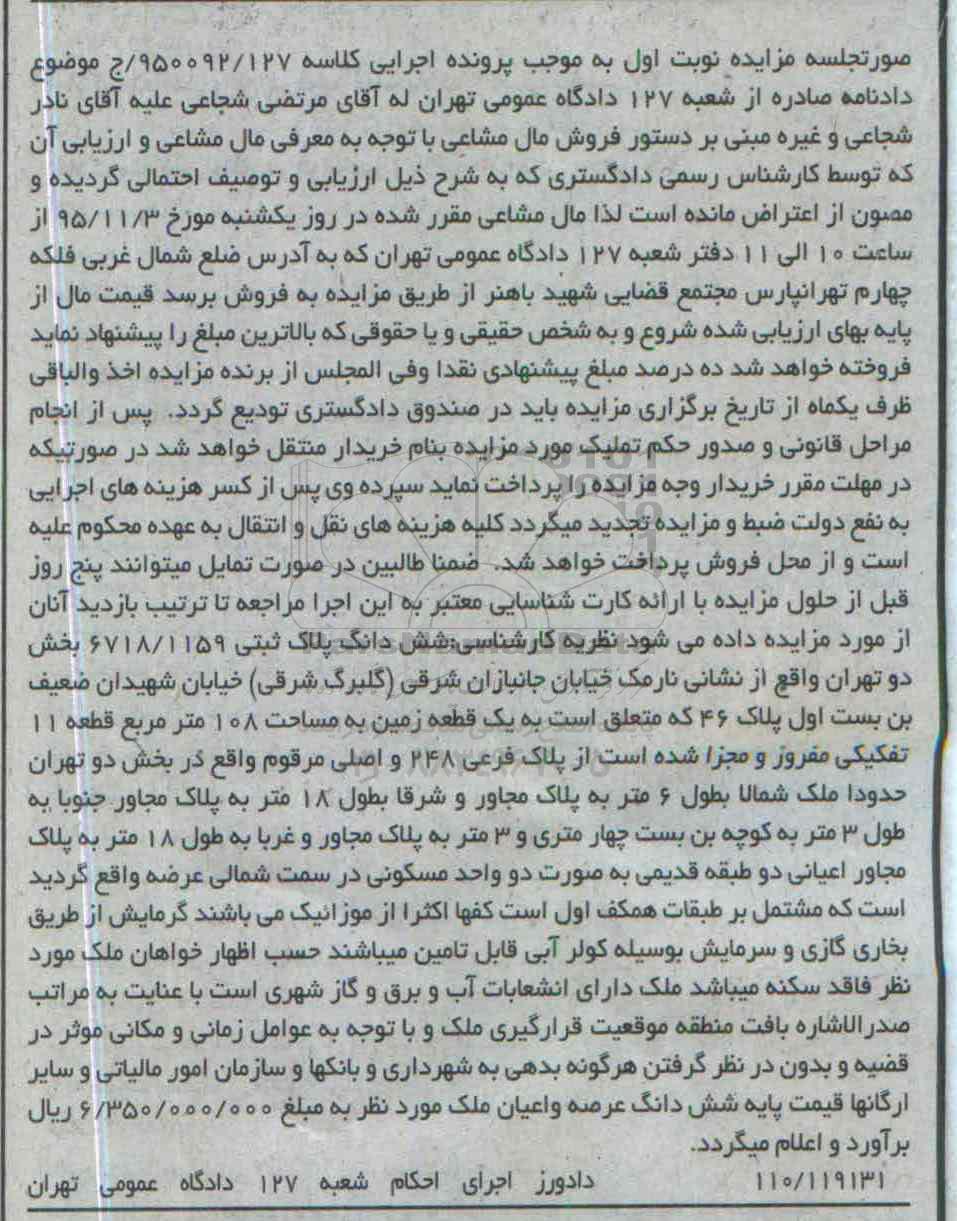 صورتجلسه مزایده نوبت اول به موجب پرونده اجرایی کلاسه ۹۵۰۰۹۲/۱۲۷/ج موضوع
دادنامه صادره از شعبه ۱۲۷ دادگاه عمومی تهران له آقای مرتضی شجاعی علیه آقای نادر
شجاعی و غیره مبنی بر دستور فروش مال مشاعی با توجه به معرفی مال مشاعی و ارزیابی آن
که توسط کارشناس رسمی دادگستری که به شرح ذیل ارزیابی و توصیف احتمالی گردیده و
مصون از اعتراض مانده است لذا مال مشاعی مقرر شده در روز یکشنبه مورخ ۹۵/۱۱/۳ از
ساعت ۱۰ الی ۱۱ دفتر شعبه ۱۲۷ دادگاه عمومی تهران که به آدرس ضلع شمال غربی فلکه
چهارم تهرانپارس مجتمع قضایی شهید باهنر از طریق مزایده به فروش برسد قیمت مال از
پایه بهای ارزیابی شده شروع و به شخص حقیقی و یا حقوقی که بالاترین مبلغ را پیشنهاد نماید
فروخته خواهد شد ده درصد مبلغ پیشنهادی نقدا وفی المجلس از برنده مزایده اخذ والباقی
ظرف یکماه از تاریخ برگزاری مزایده باید در صندوق دادگستری تودیع گردد. پس از انجام
مراحل قانونی و صدور حکم تملیک مورد مزایده بنام خریدار منتقل خواهد شد در صورتیکه
در مهلت مقرر خریدار وجه مزایده را پرداخت نماید سپرده وی پس از کسر هزینه های اجرایی
به نفع دولت ضبط و مزایده تجدید میگردد کلیه هزینه های نقل و انتقال به عهده محکوم علیه
است و از محل فروش پرداخت خواهد شد. ضمنا طالبین در صورت تمایل میتوانند پنج روز
قبل از حلول مزایده با ارائه کارت شناسایی معتبر به این اجرا مراجعه تا ترتیب بازدید آنان
از مورد مزایده داده می شود نظریه کارشناسی:شش دانگ پلاک ثبتی ۶۷۱۸/۱۱۵۹ بخش
دو تهران واقع از نشانی نارمک خیابان جانبازان شرقی (گلبرگ شرقی) خیابان شهیدان ضعیف
بن بست اول پلاک ۴۶ که متعلق است به یک قطعه زمین به مساحت ۱۰۸ متر مربع قطعه ۱۱
تفکیکی مفروز و مجزا شده است از پلاک فرعی ۲۴۸ و اصلی مرقوم واقع در بخش دو تهران
حدودا ملک شمالا بطول ۶ متر به پلاک مجاور و شرقا بطول ۱۸ متر به پلاک مجاور جنوبا به
طول ۳ متر به کوچه بن بست چهار متری و ۳ متر به پلاک مجاور و غربا به طول ۱۸ متر به پلاک
مجاور اعیانی دو طبقه قدیمی به صورت دو واحد مسکونی در سمت شمالی عرضه واقع گردید
است که مشتمل بر طبقات همکف اول است کفها اکثرا از موزائیک می باشند گرمایش از طریق
بخاری گازی و سرمایش بوسیله کولر آبی قابل تامین میباشند حسب اظهار خواهان ملک مورد
نظر فاقد سکنه میباشد ملک دارای انشعابات آب و برق و گاز شهری است با عنایت به مراتب
صدرالاشاره بافت منطقه موقعیت قرارگیری ملک و با توجه به عوامل زمانی و مکانی موثر در
قضیه و بدون در نظر گرفتن هرگونه بدهی به شهرداری و بانکها و سازمان امور مالیاتی و سایر
ارگانها قیمت پایه شش دانگ عرصه واعیان ملک مورد نظر به مبلغ ۶/۳۵۰/۰۰۰/۰۰۰ ریال
برآورد و اعلام میگردد.
۱۱۰/۱۱۹۱۳۱ دادورز اجرای احکام شعبه ۱۲۷ دادگاه عمومی تهران